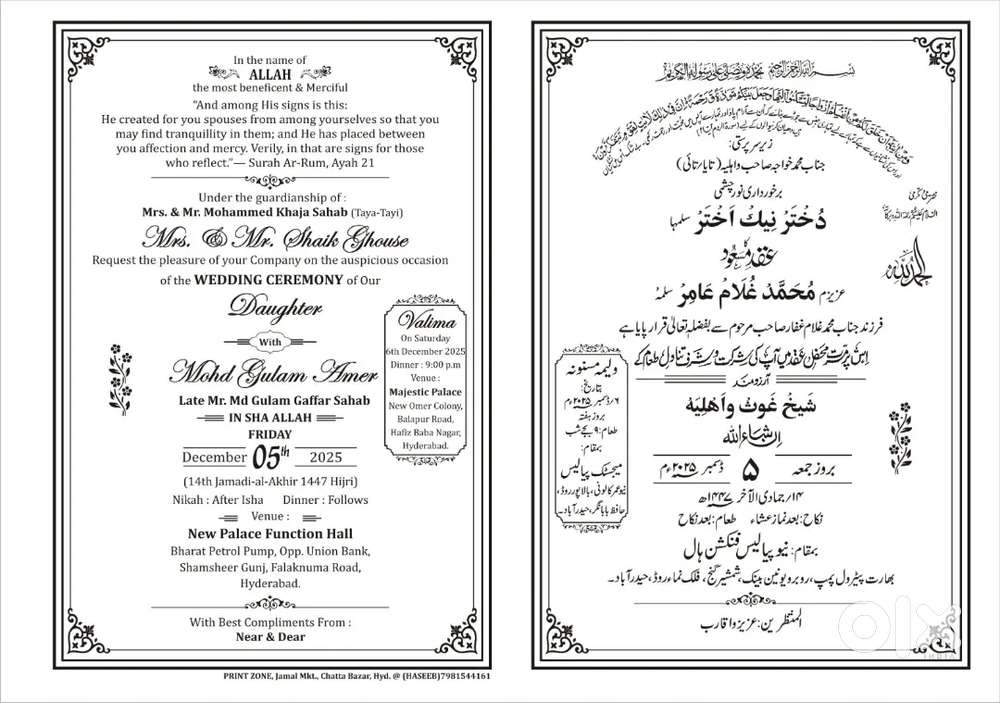 In the name of
ALLAH
the most beneficent & Merciful
“And among His signs is this:
He created for you spouses from among yourselves so that you
may find tranquillity in them; and He has placed between
you affection and mercy. Verily, in that are signs for those
who reflect.”— Surah Ar-Rum, Ayah 21
Under the guardianship of :
Mrs. & Mr. Mohammed Khaja Sahab (Taya-Tayi)
Mrs. & Mr. Shaik Ghouse
Request the pleasure of your Company on the auspicious occasion
of the WEDDING CEREMONY of Our
Daughter
With
Mohd Gulam Amer
Late Mr. Md Gulam Gaffar Sahab
IN SHA ALLAH
FRIDAY
December 05th 2025
(14th Jamadi-al-Akhir 1447 Hijri)
Nikah : After Isha Dinner : Follows
Venue :
New Palace Function Hall
Bharat Petrol Pump, Opp. Union Bank,
Shamsheer Gunj, Falaknuma Road,
Hyderabad.
With Best Compliments From :
Near & Dear
Valima
On Saturday
6th December 2025
Dinner : 9:00 p.m
Venue :
Majestic Palace
New Omer Colony,
Balapur Road,
Hafiz Baba Nagar,
Hyderabad.
PRINT ZONE, Jamal Mkt., Chatta Bazar, Hyd. @ (HASEEB)7981544161
زیر سرپرستی:
جناب محمد خواجہ صاحب واہلیہ (تایا رتائی)
برخورداری نورچشمی
دُختَرْ نیكْ اَختَرْ سلمہا
عقد مسعود
عزیزم مُحَمَّدْ غُلَامْ عَامِرْ سلمہٗ
فرزند جناب محمد غلام غفار صاحب مرحوم سے بفضلہٖ تعالیٰ قرار پایا ہے
اس پرمسرت محفلِ عقد میں آپ کی شرکت وشرف تناول طعام کے
آرزومند
شَیخْ غَوثْ واَهْلِیَهْ
ان شاء اللہ
بروز جمعہ ۵ ڈسمبر ۲۰۲۵ء م
۱۴/ جمادی الآخر ۱۴۴۷ھ
نکاح: بعد نماز عشاء طعام: بعد نکاح
بمقام: نیو پیالیس فنکشن ہال
بھارت پیٹرول پمپ، روبرو یونین بینک، شمشیر گنج، فلک نماء روڈ، حیدرآباد۔
المنتظرین: عزیز واقارب
الحمد للہ
ولیمہ مسنونہ
بتاریخ:
۶/ ڈسمبر ۲۰۲۵ء م
بروز ہفتہ
طعام: ۹ بجے شب
بمقام:
میجسٹک پیالیس
نیو عمر کالونی، بالاپور روڈ،
حافظ بابا نگر، حیدرآباد۔
olx